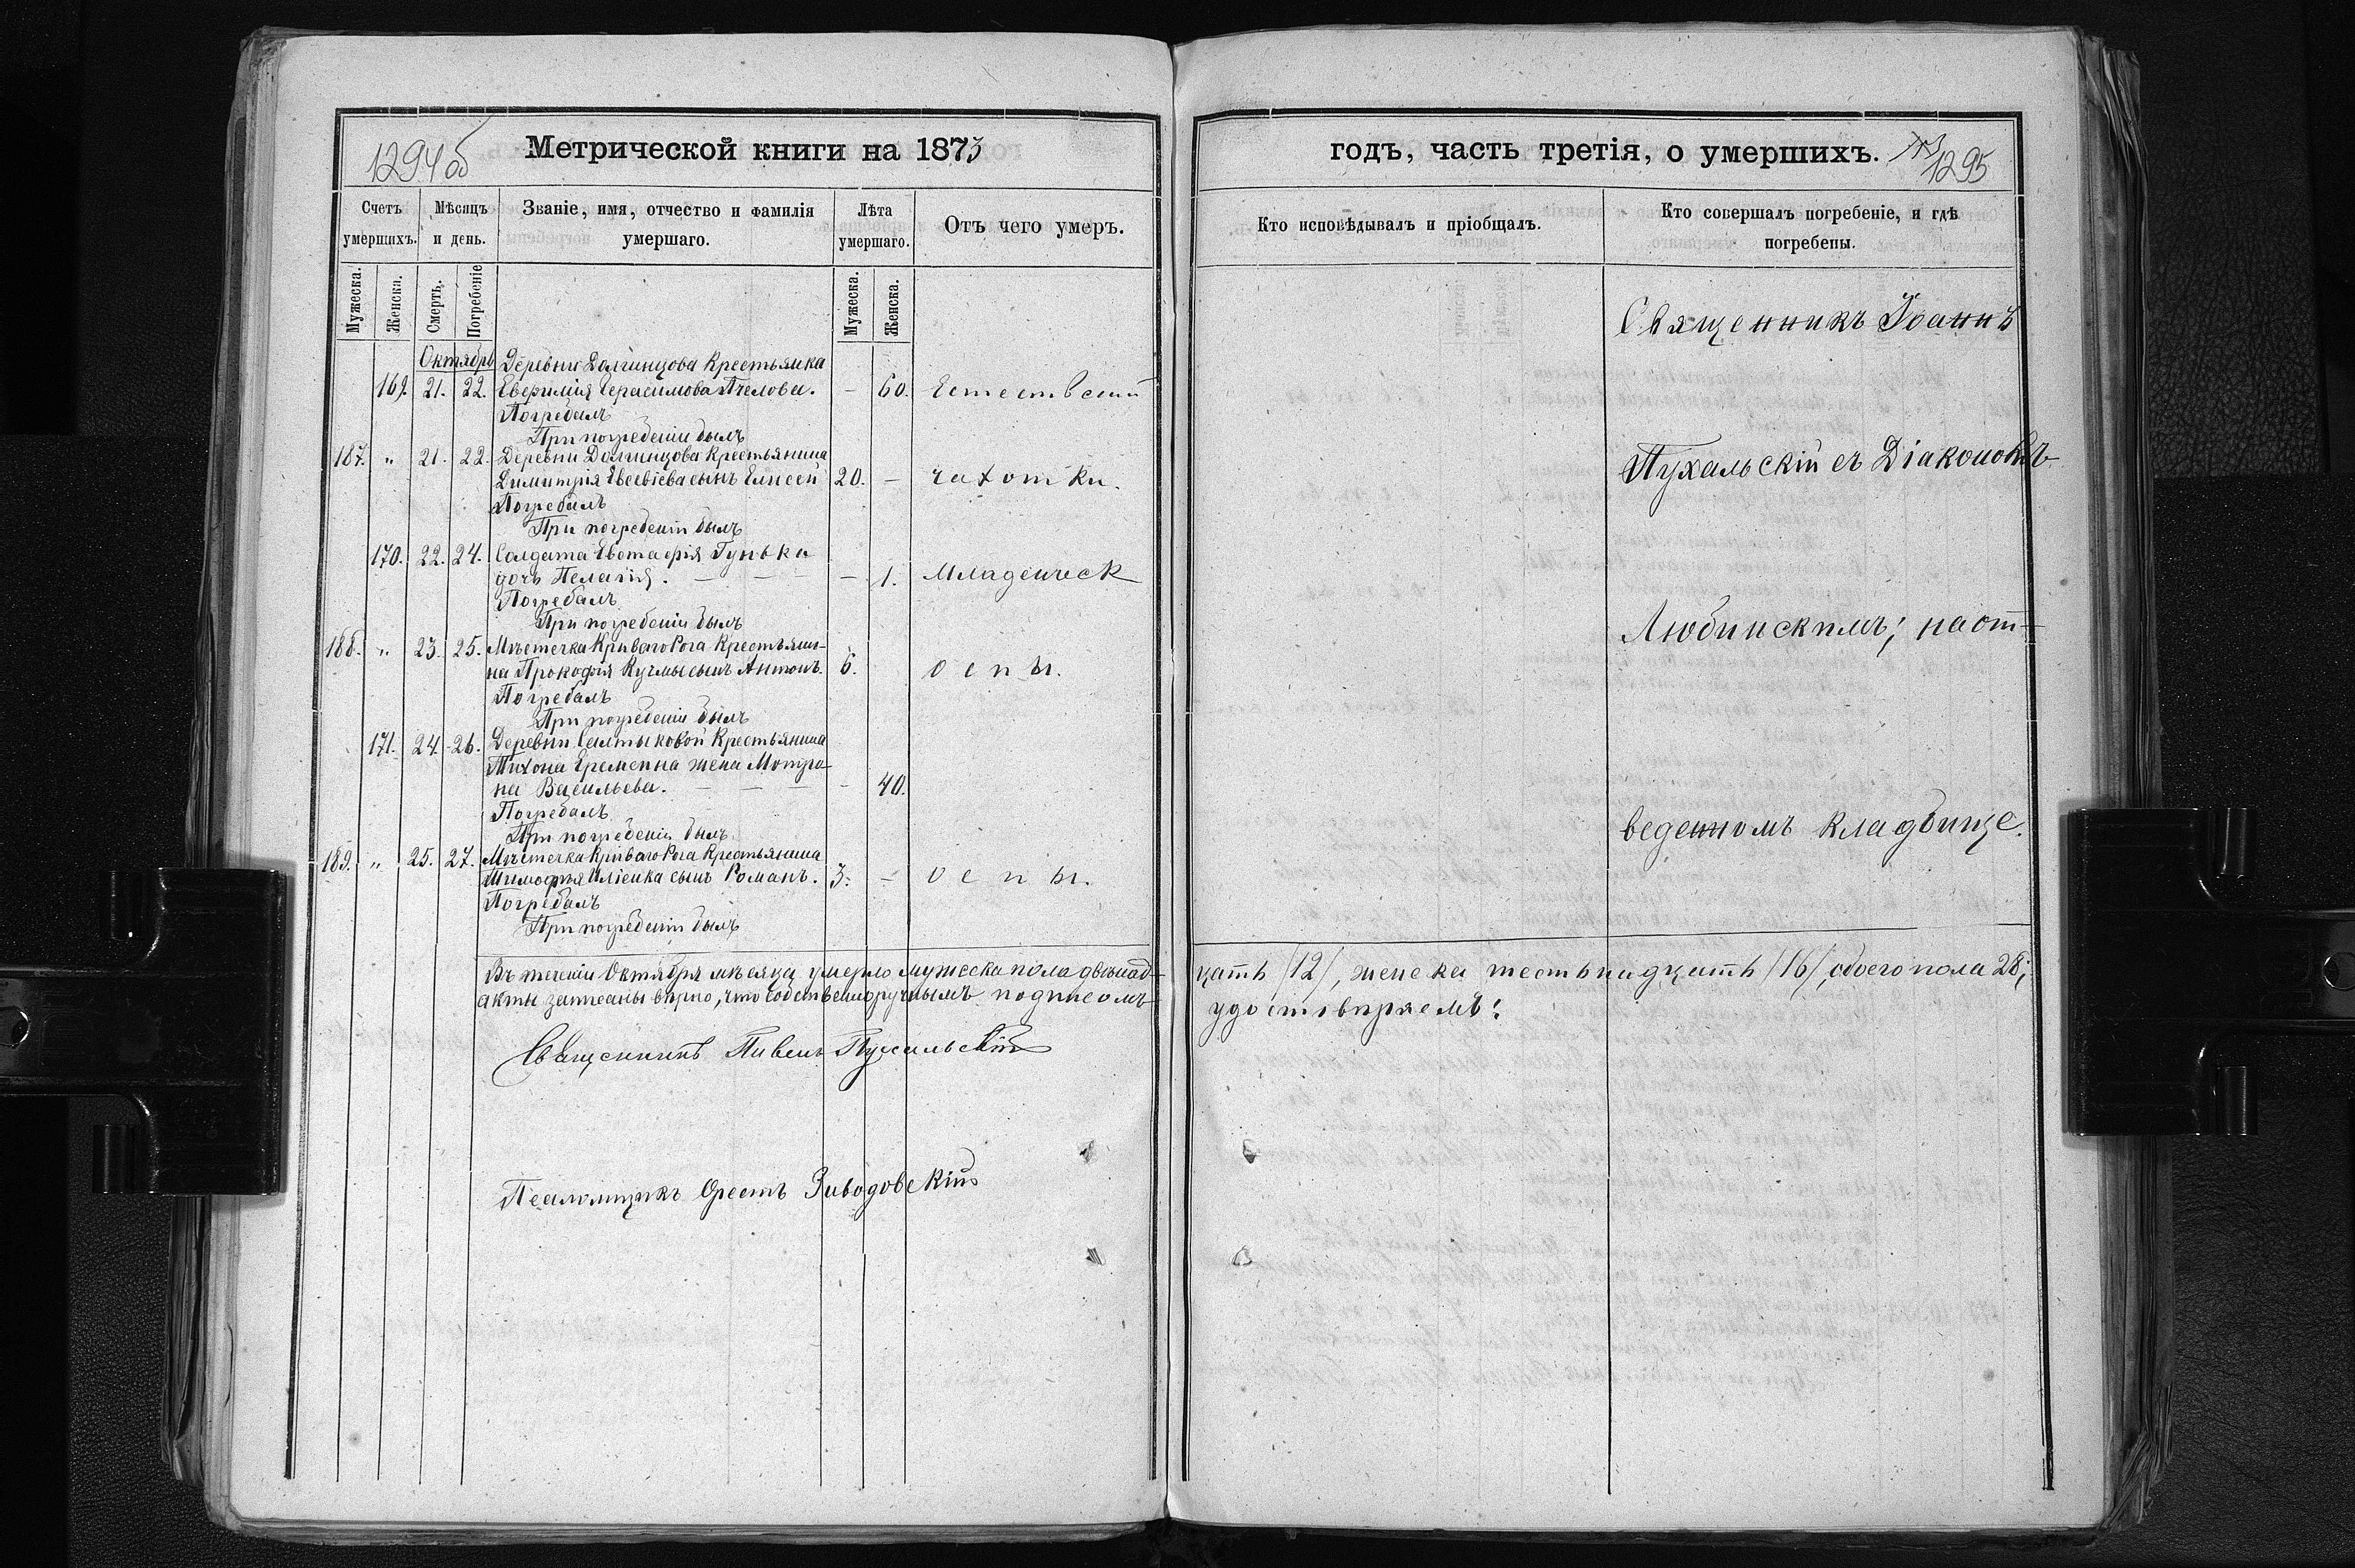 1294об
Метрической книги на 1873
Счетъ умершихъ.
Мѣсяцъ и день.
Званіе, имя, отчество и фамилія умершаго.
Лѣта умершаго.
Отъ чего умеръ.
Мужеска.
Женска.
Смерть.
Погребеніе
Мужеска.
Женска.
Октябрь Деревни Долгинцова Крестьянка
169. 21. 22. Евфимія Герасимова Пчелова. – 60. Естествений
Погребалъ
При погребеніи былъ
187. „ 21. 22. Деревни Долгинцова Крестьянина
Димитрія Евсевіева сынъ Елисей 20. – чахотки.
Погребалъ
При погребеніи былъ
170. 22. 24. Солдата Евстафія Гунька
дочь Пелагія. – – – – 1. Младенческ
Погребалъ
При погребеніи былъ
188. „ 23. 25. Мѣстечка Криваго Рога Крестьяни-
на Прокофія Кучмы сынъ Антонъ. 6. оспы.
Погребалъ
При погребеніи былъ
171. 24. 26. Деревни Салтыковой Крестьянина
Тихона Еременка жена Мотро-
на Васильева. – – – – 40.
Погребалъ
При погребеніи былъ
189. „ 25. 27. Мѣстечка Криваго Рога Крестьянина
Тимофѣя сынъ Романъ. 3. – оспы.
Погребалъ
При погребеніи былъ
Въ теченіи Октября мѣсяца умерло мужеска пола двѣнад-
акты записаны вѣрно, что собственноручнымъ подписомъ
Священникъ Павелъ Пухальскій
Псаломщикъ Орестъ Заводовскій
годъ, часть третія, о умершихъ.
1295
Кто исповѣдывалъ и пріобщалъ.
Кто совершалъ погребеніе, и гдѣ погребены.
Священникъ Іоаннъ
Пухальскій съ Діакономъ
Любинскимъ; на от-
веденномъ кладбище.
цать /12/, женска шестьнадцать /16/, обоего пола 28;
удостовѣряемъ: